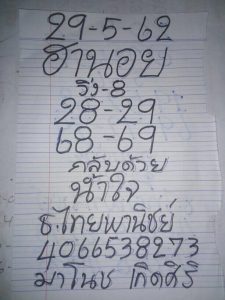 29-5-62
ฮานอย
วิ่ง-8
28-29
68-69
กลับด้วย
น้ำใจ
ธ.ไทยพานิชย์
4066538273
มาโนช เกิดศิริ